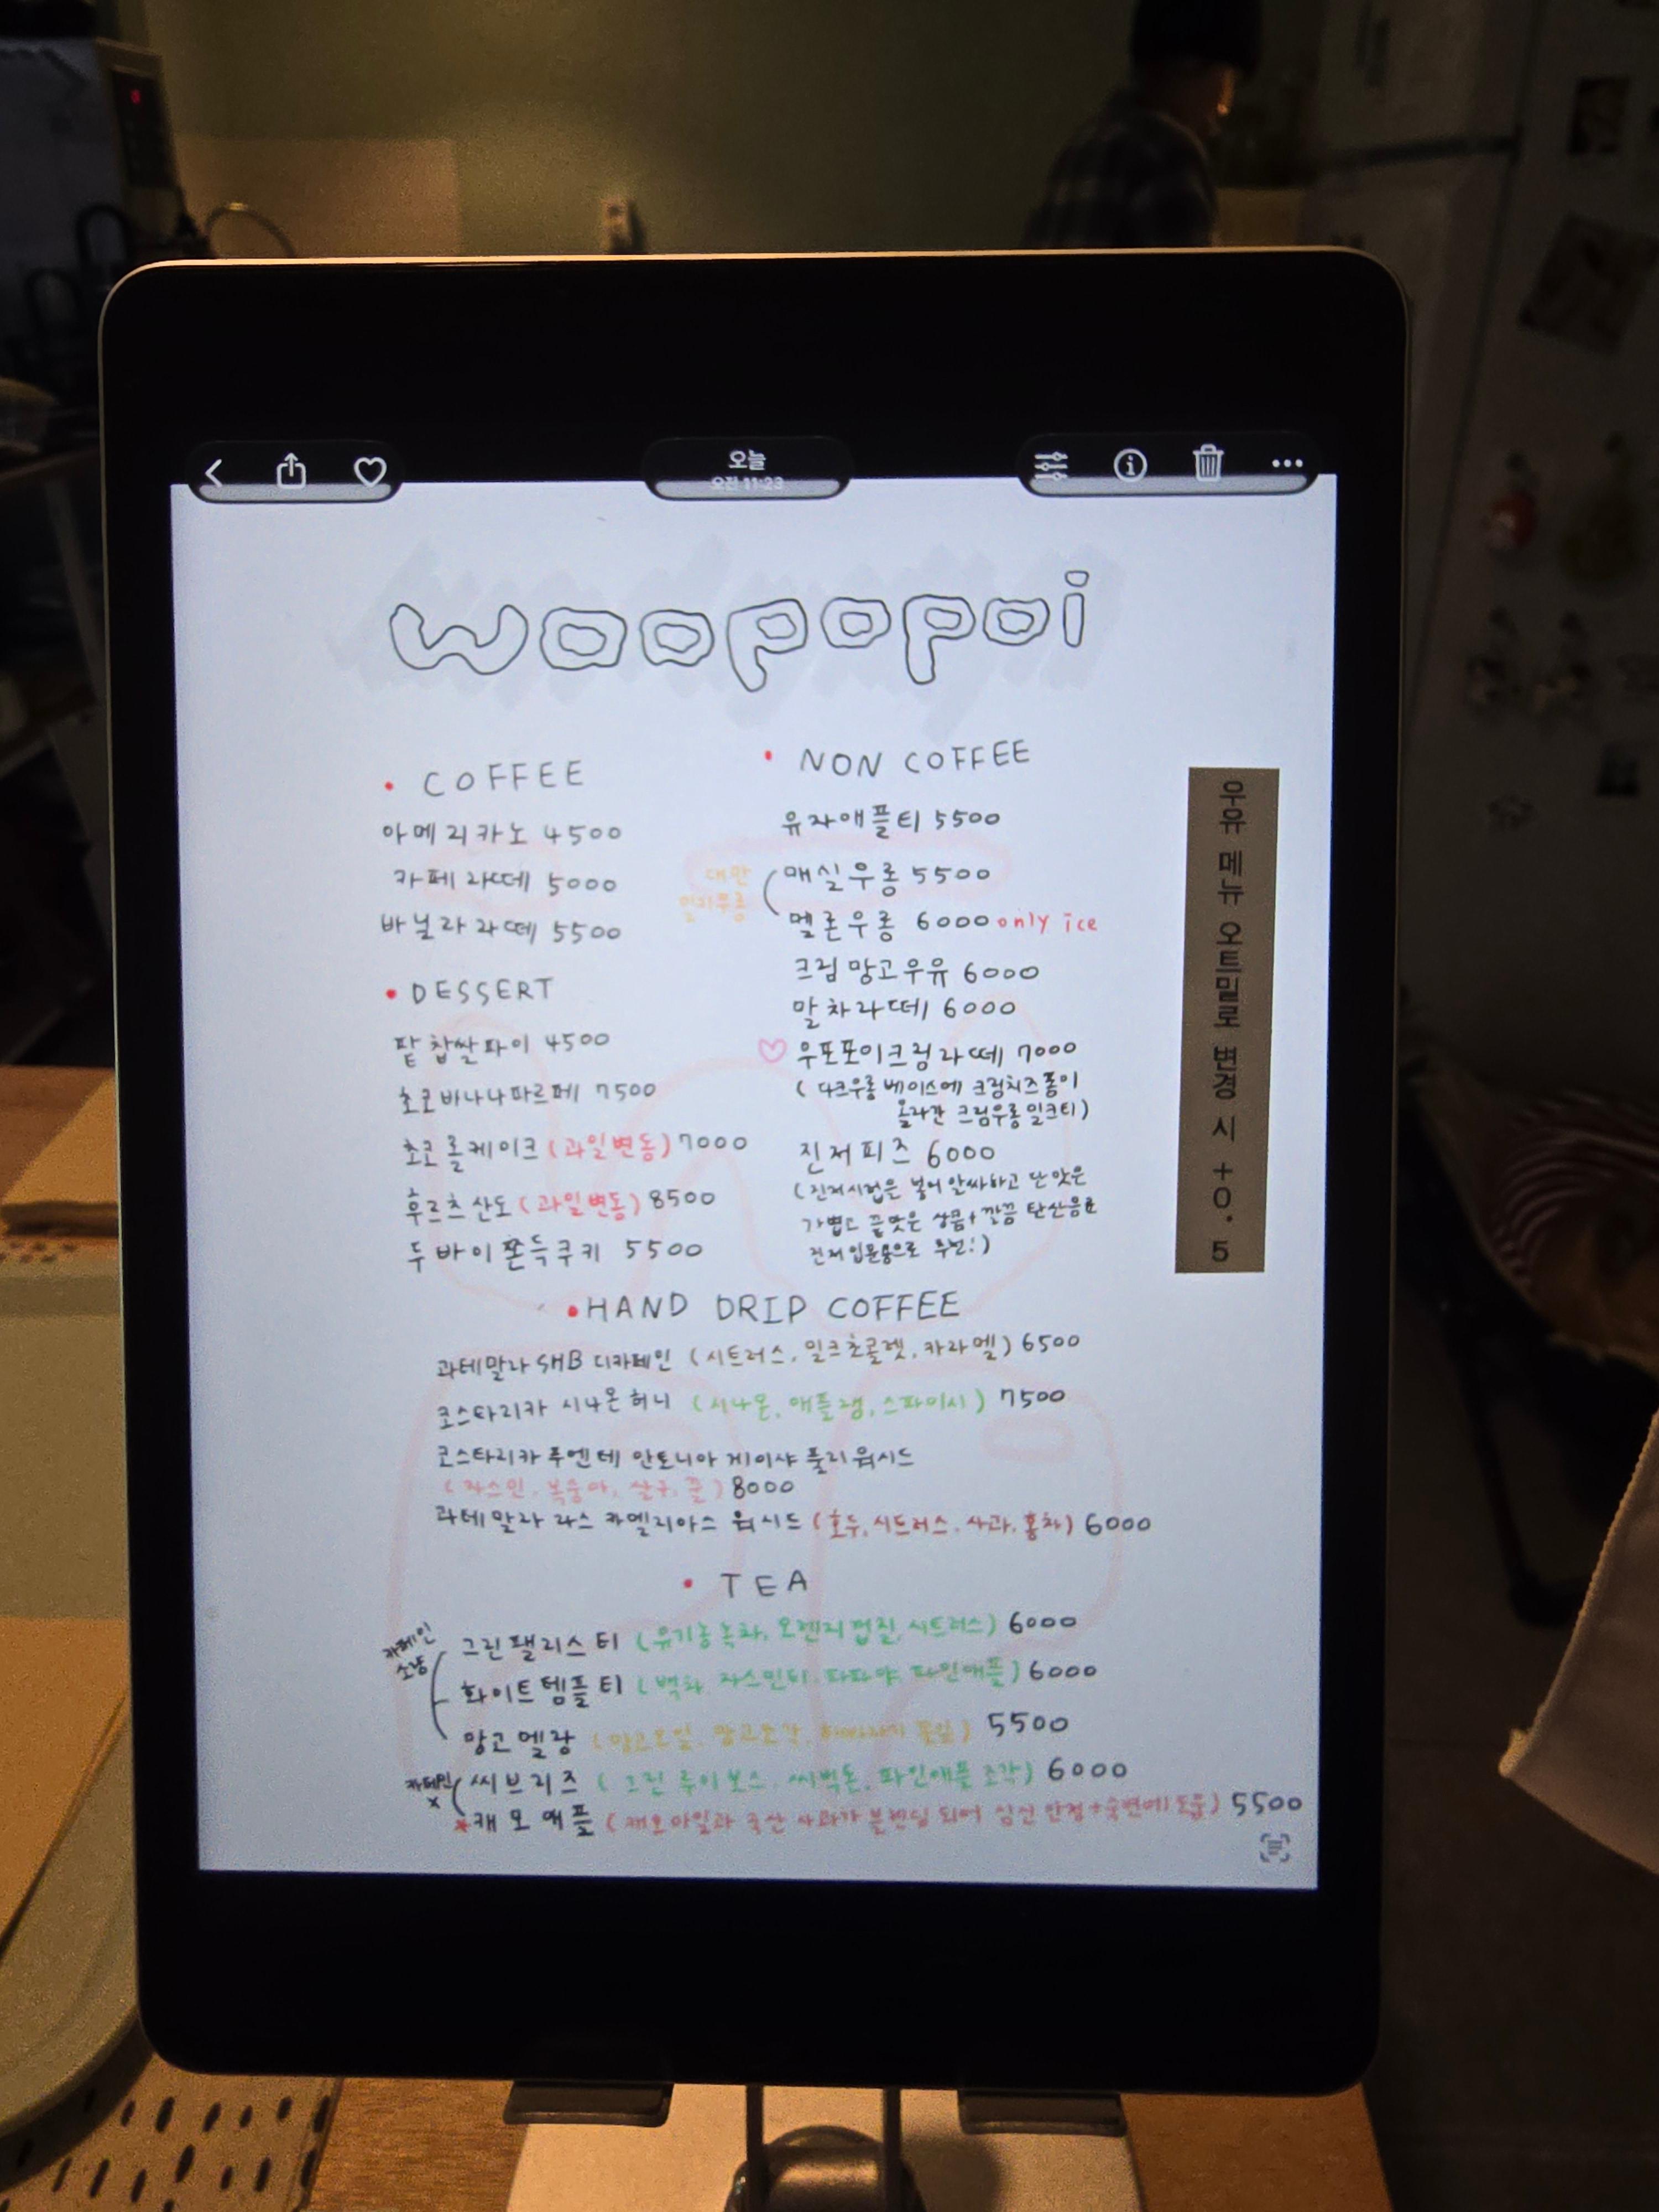 오늘
오전 11:23
woopopoi
• COFFEE
아메리카노 4500
카페라떼 5000
바닐라라떼 5500
• DESSERT
팥찹쌀파이 4500
초코바나나파르페 7500
초코롤케이크 (과일변동) 7000
후르츠산도 (과일변동) 8500
두바이쫀득쿠키 5500
• NON COFFEE
유자애플티 5500
대만
밀키우롱
매실우롱 5500
멜론우롱 6000 only ice
크림망고우유 6000
말차라떼 6000
♡ 우포포이크림라떼 7000
(다크우롱 베이스에 크림치즈폼이
올라간 크림우롱밀크티)
진저피즈 6000
(진저시럽은 넣어 알싸하고 단맛은
가볍고 끝맛은 상큼+깔끔 탄산음료
진저입문용으로 추천!)
우유 메뉴 오트밀로 변경 시 +0.5
• HAND DRIP COFFEE
과테말라 SHB 디카페인 (시트러스, 밀크초콜렛, 카라멜) 6500
코스타리카 시나몬허니 (시나몬, 애플잼, 스파이시) 7500
코스타리카 푸엔테 안토니아 게이샤 풀리워시드
(자스민, 복숭아, 살구, 꿀) 8000
과테말라 라스 카멜리아스 워시드 (호두, 시트러스, 사과, 홍차) 6000
• TEA
카페인
소량
그린팰리스티 (유기농녹차, 오렌지껍질, 시트러스) 6000
화이트템플티 (백차, 자스민티, 파파야, 파인애플) 6000
망고멜랑 (망고오일, 망고조각, 꽃잎) 5500
카페인
x
씨브리즈 (그린 루이보스, 씨벅톤, 파인애플 조각) 6000
*캐모애플 (캐모마일과 국산 사과가 블렌딩 되어 심신 안정+숙면에 도움) 5500